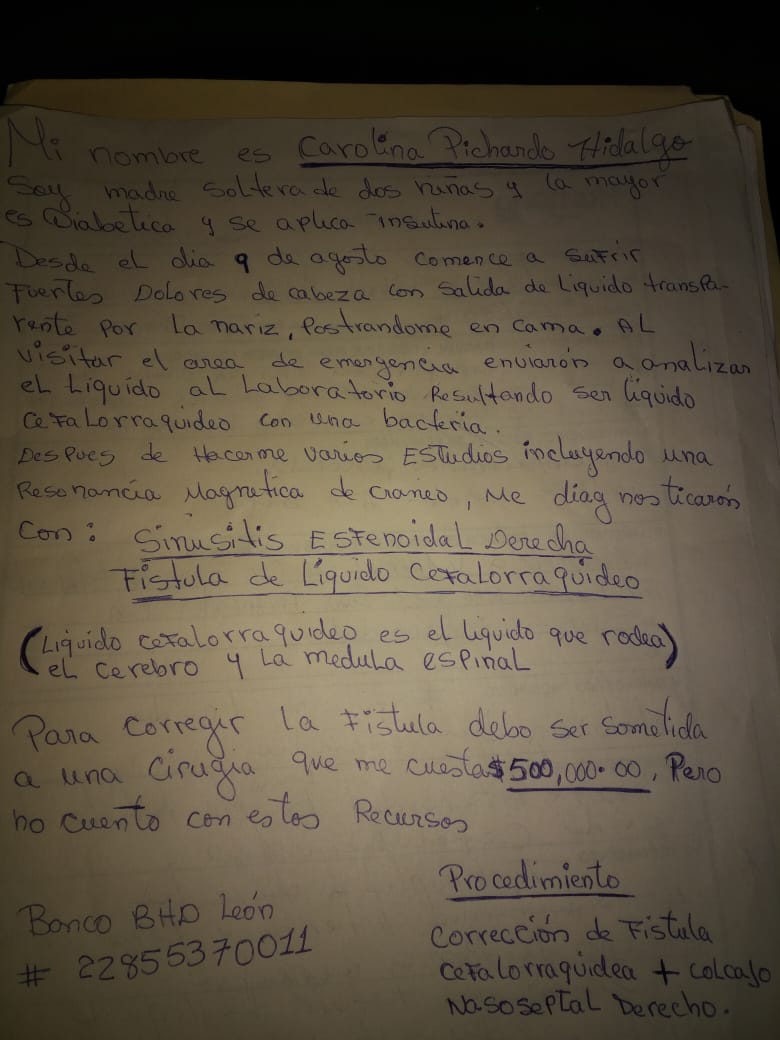 Mi nombre es Carolina Pichardo Hidalgo
Soy madre soltera de dos niñas y la mayor
es Diabetica y se aplica insulina.
Desde el dia 9 de agosto comence a sufrir
Fuertes Dolores de cabeza con salida de Liquido transpa-
rente por la nariz, Postrandome en cama. AL
visitar el area de emergencia enviarón a analizar
el Líquido al Laboratorio Resultando ser líquido
Cefalorraquideo con una bacteria.
Despues de Hacerme varios Estudios incluyendo una
Resonancia Magnetica de craneo, Me diagnosticarón
Con: Sinusitis Esfenoidal Derecha
Fístula de Líquido Cefalorraquídeo
(Líquido cefalorraquideo es el líquido que rodea)
el cerebro y La medula espinal
Para corregir la Fístula debo ser sometida
a una cirugía que me cuesta $500,000.00, Pero
no cuento con estos Recursos
Banco BHD León
# 22855370011
Procedimiento
Corrección de Fístula
Cefalorraquidea + colcajo
Nasoseptal Derecho.